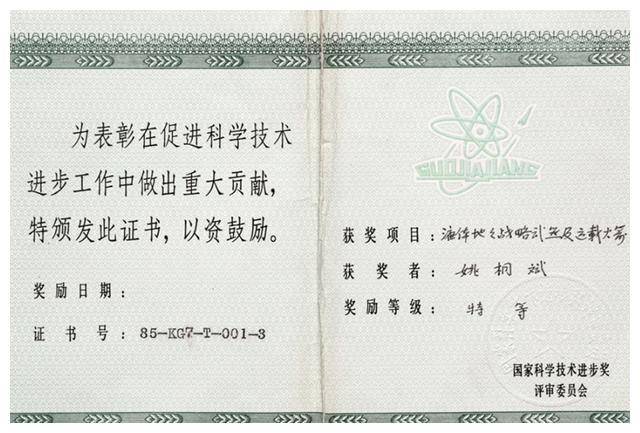 为表彰在促进科学技术
进步工作中做出重大贡献,
特颁发此证书,以资鼓励。
奖励日期:
证书号:85-KG7-T-001-3
GUOJIAJIANG
获奖项目:液体地地战略武器及运载火箭
获奖者:姚桐斌
奖励等级:特等
国家科学技术进步奖
评审委员会